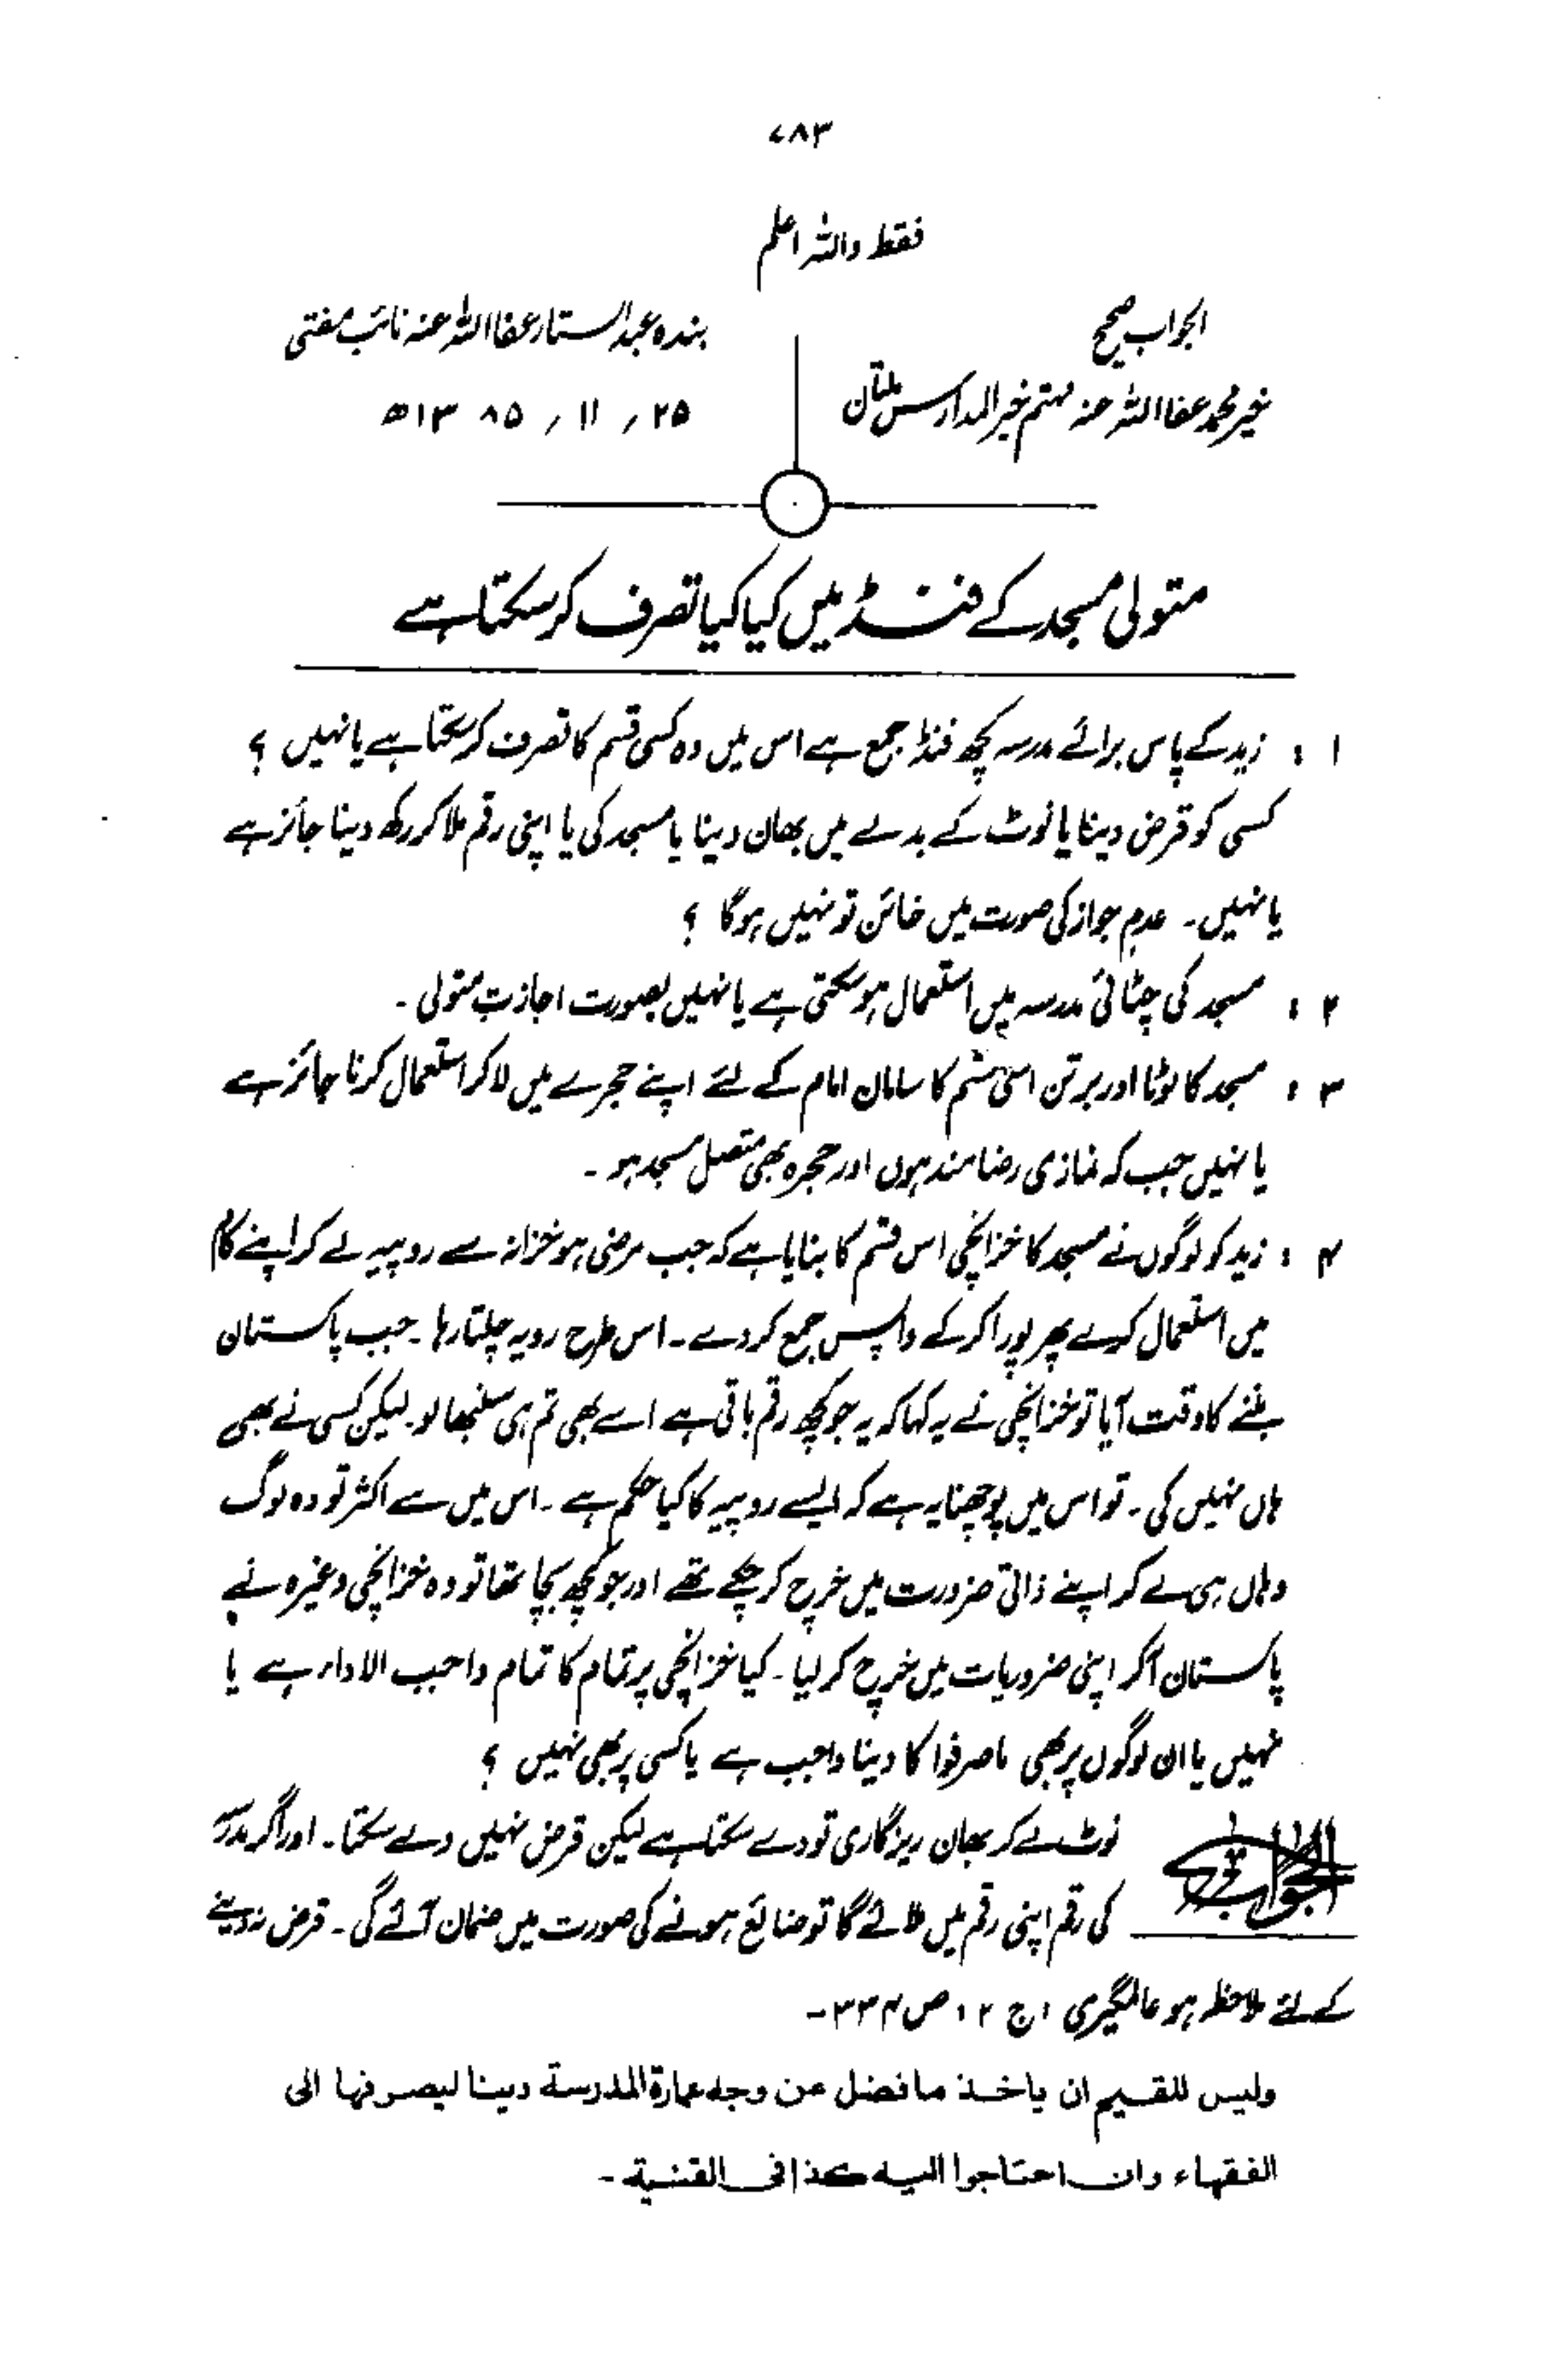 ۷۸۳
فقط واللہ اعلم
الجواب صحیح
خیر محمد عفا اللہ عنہ مہتمم خیر المدارس ملتان
بندہ عبدالستار عفا اللہ عنہ نائب مفتی
۲۵ / ۱۱ / ۸۵ ۱۳ھ
متولی مسجد کے فنڈ میں کیا کیا تصرف کر سکتا ہے
۱ : زید کے پاس برائے مدرسہ کچھ فنڈ جمع ہے اس میں وہ کسی قسم کا تصرف کر سکتا ہے یا نہیں ؟
کسی کو قرض دینا یا نوٹ کے بدلے میں بھان دینا یا مسجد کی یا اپنی رقم ملا کر رکھ دینا جائز ہے
یا نہیں ۔ عدم جواز کی صورت میں خائن تو نہیں ہوگا ؟
۲ : مسجد کی چٹائی مدرسہ میں استعمال ہو سکتی ہے یا نہیں بصورت اجازت متولی ۔
۳ : مسجد کا لوٹا اور برتن اسی قسم کا سامان امام کے لئے اپنے حجرے میں لا کر استعمال کرنا جائز ہے
یا نہیں جب کہ نمازی رضا مند ہوں اور حجرہ بھی متصل مسجد ہو ۔
۴ : زید کو لوگوں نے مسجد کا خزانچی اس قسم کا بنایا ہے کہ جب مرضی ہو خزانہ سے روپیہ لے کر اپنے کام
میں استعمال کرے پھر پورا کر کے واپس جمع کر دے ۔ اس طرح رویہ چلتا رہا ۔ جب پاکستان
بننے کا وقت آیا تو خزانچی نے یہ کہا کہ یہ جو کچھ رقم باقی ہے اسے بھی تم ہی سنبھالو لیکن کسی نے بھی
ہاں نہیں کی ۔ تو اس میں پوچھنا یہ ہے کہ ایسے روپیہ کا کیا حکم ہے ۔ اس میں سے اکثر تو وہ لوگ
وہاں ہی لے کر اپنے ذاتی ضرورت میں خرچ کر چکے تھے اور جو کچھ بچا تھا تو وہ خزانچی وغیرہ نے
پاکستان آ کر اپنی ضروریات میں خرچ کر لیا ۔ کیا خزانچی پر تمام کا تمام واجب الاداء ہے یا
نہیں یا ان لوگوں پر بھی ما صرفوا کا دینا واجب ہے یا کسی پر بھی نہیں ؟
الجواب نوٹ لے کر بھان ریزگاری تو دے سکتا ہے لیکن قرض نہیں دے سکتا ۔ اور اگر مدرسہ
کی رقم اپنی رقم میں ملائے گا تو ضائع ہونے کی صورت میں ضمان آئے گی ۔ قرض نہ دینے
کے لئے ملاحظہ ہو عالمگیری ، ج ۲ ، ص ۳۳۴ ۔
وليس للقيم ان ياخذ ما فضل عن وجه عمارة المدرسة دينا ليصرفها الى
الفقهاء وان احتاجوا اليه كذا فى القنية ۔